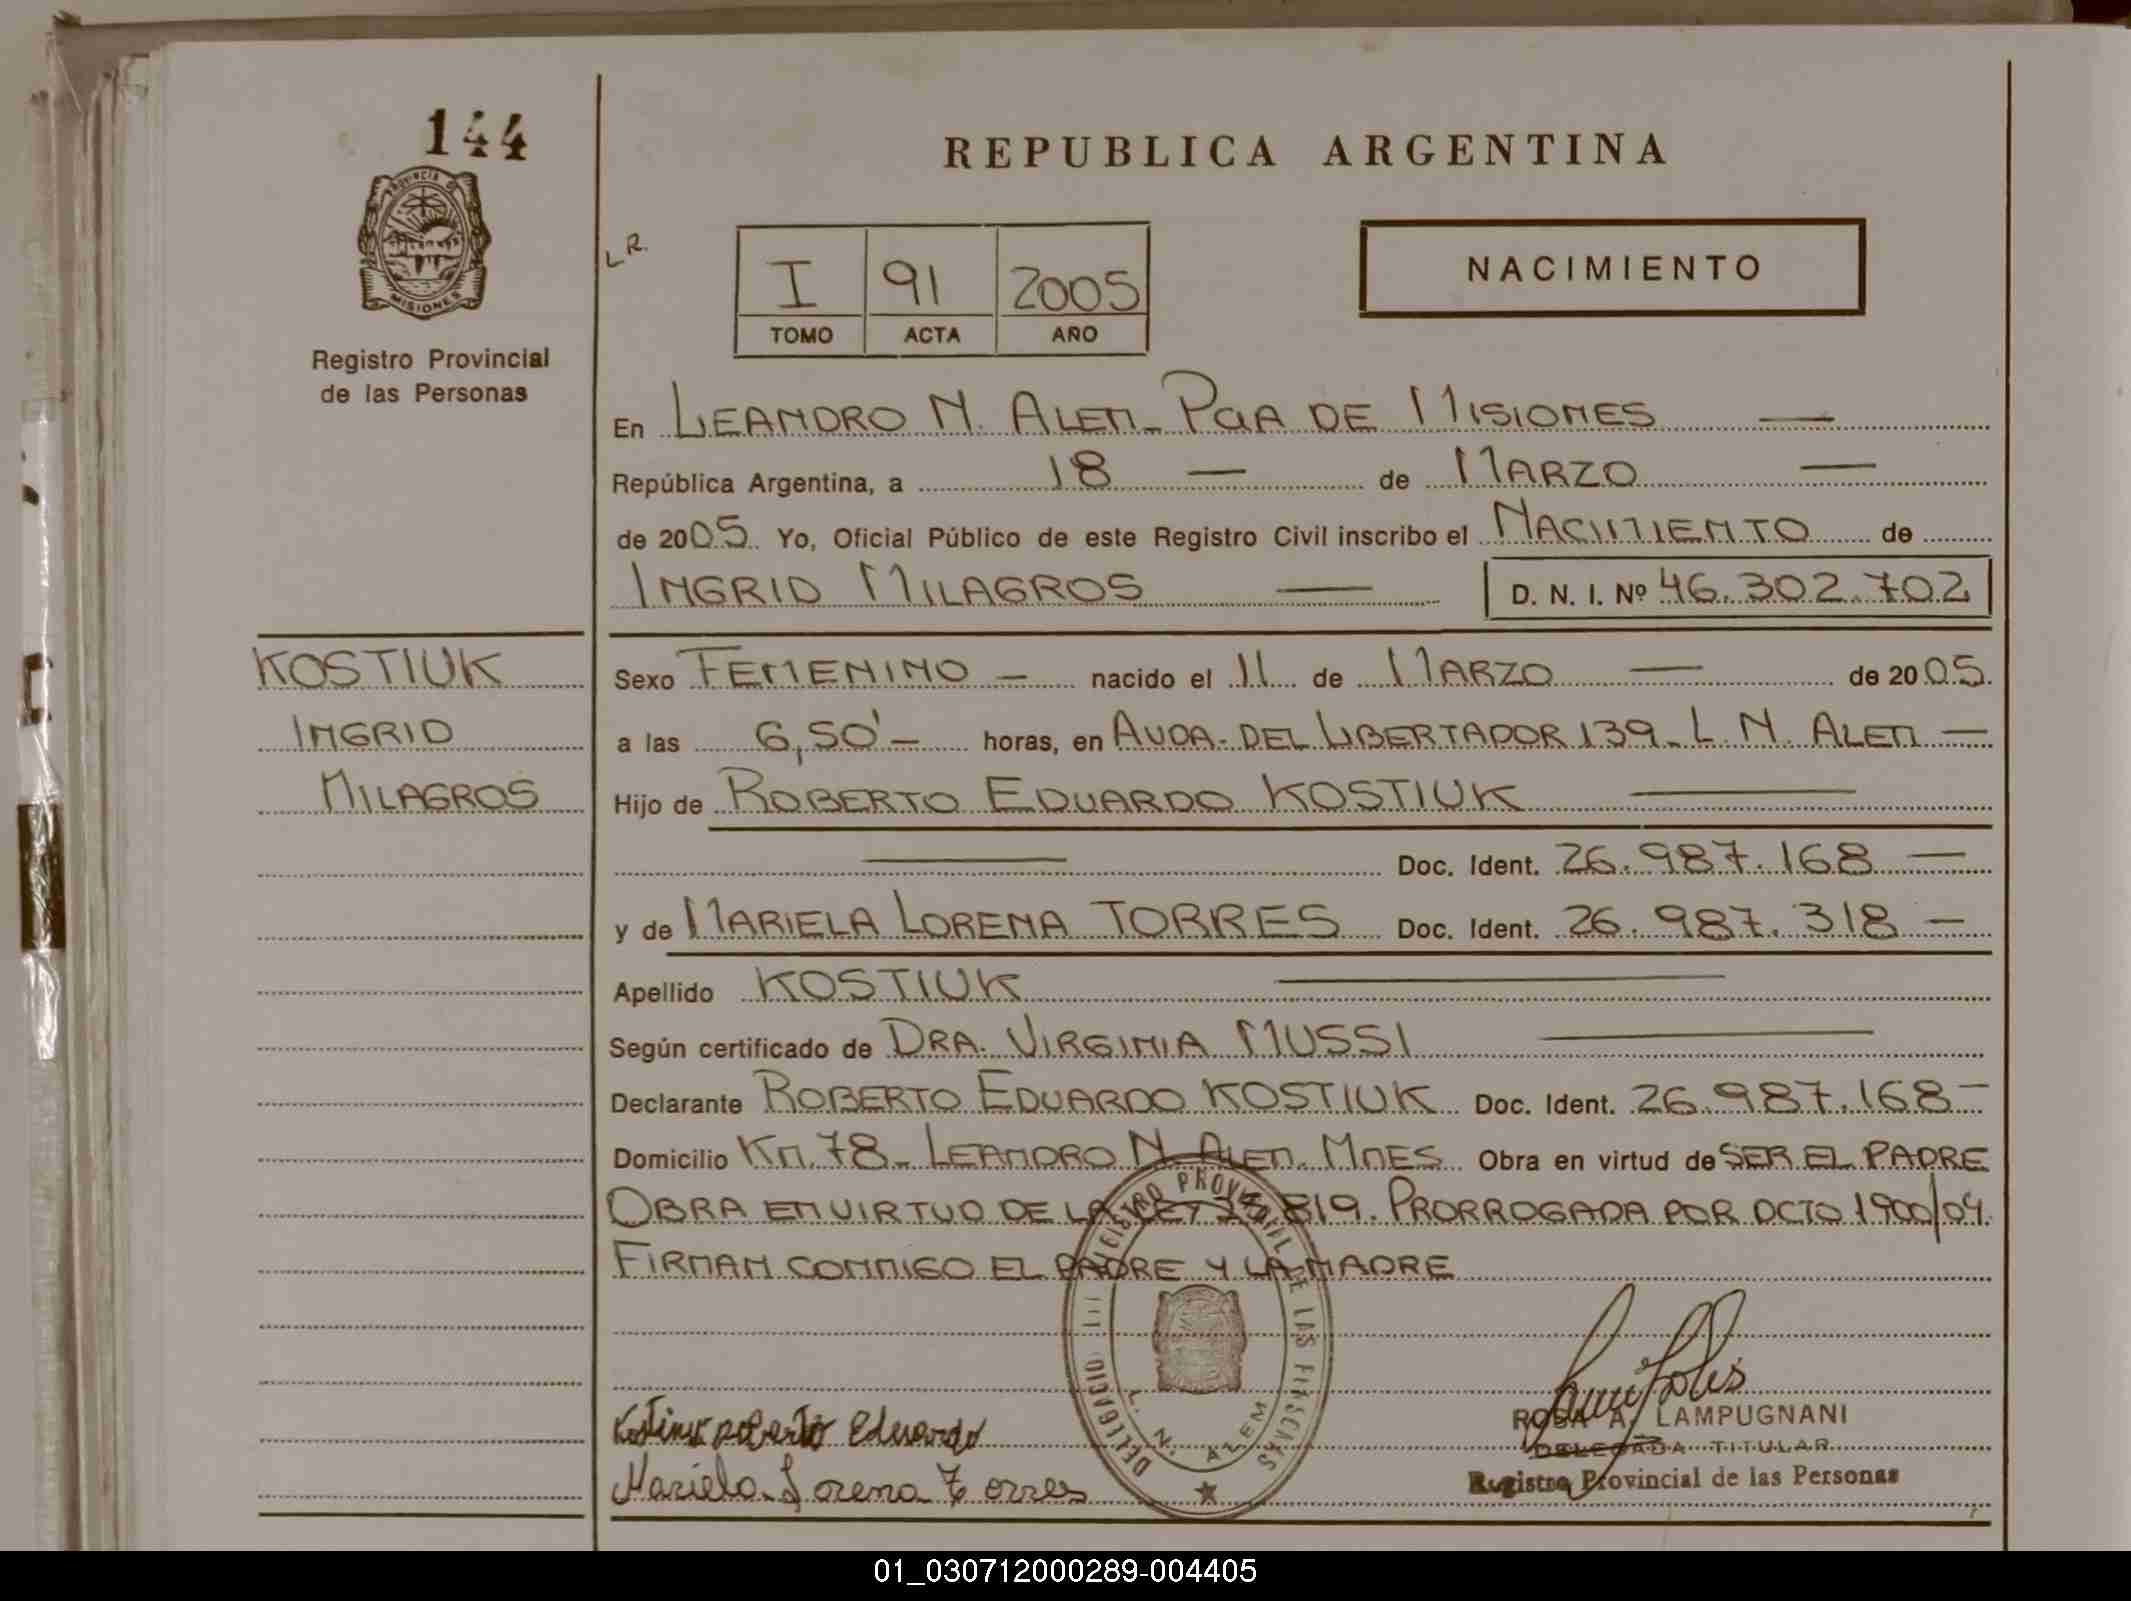 144
REPUBLICA ARGENTINA
PROVINCIA DE
MISIONES
L R.
I 91 2005
TOMO ACTA AÑO
NACIMIENTO
Registro Provincial
de las Personas
En LEANDRO N. ALEM - PCIA DE MISIONES —
República Argentina, a 18 — de MARZO —
de 2005. Yo, Oficial Público de este Registro Civil inscribo el NACIMIENTO de
INGRID MILAGROS — D. N. I. Nº 46.302.702
KOSTIUK
INGRID
MILAGROS
Sexo FEMENINO — nacido el 11 de MARZO — de 2005.
a las 6,50' — horas, en AVDA. DEL LIBERTADOR 139 - L. N. ALEM —
Hijo de ROBERTO EDUARDO KOSTIUK —
— Doc. Ident. 26.987.168 —
y de MARIELA LORENA TORRES Doc. Ident. 26.987.318 —
Apellido KOSTIUK —
Según certificado de DRA. VIRGINIA MUSSI —
Declarante ROBERTO EDUARDO KOSTIUK Doc. Ident. 26.987.168 -
Domicilio KM. 78 - LEANDRO N. ALEM. MNES Obra en virtud de SER EL PADRE
OBRA EN VIRTUD DE LA LEY 25819. PRORROGADA POR DCTO 1900/04.
FIRMAN CONMIGO EL PADRE Y LA MADRE
REGISTRO PROVINCIAL DE LAS PERSONAS
DELEGACIO
L. N. ALEM
Kostiuk roberto Eduardo
Mariela Lorena Torres
ROSA A. LAMPUGNANI
DELEGADA TITULAR
Registro Provincial de las Personas
01_030712000289-004405